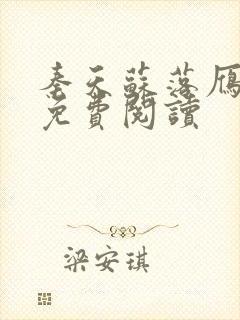 奉天蘇落雁
免費閱讀
梁安琪